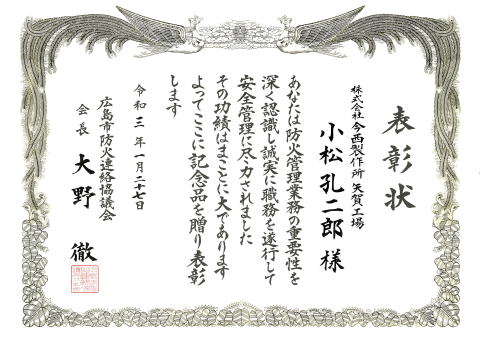 表彰状
株式会社今西製作所 矢賀工場
小松孔二郎様
あなたは防火管理業務の重要性を
深く認識し誠実に職務を遂行して
安全管理に尽力されました
その功績はまことに大であります
よってここに記念品を贈り表彰
します
令和三年一月二十七日
広島市防火連絡協議会
会長 大野 徹